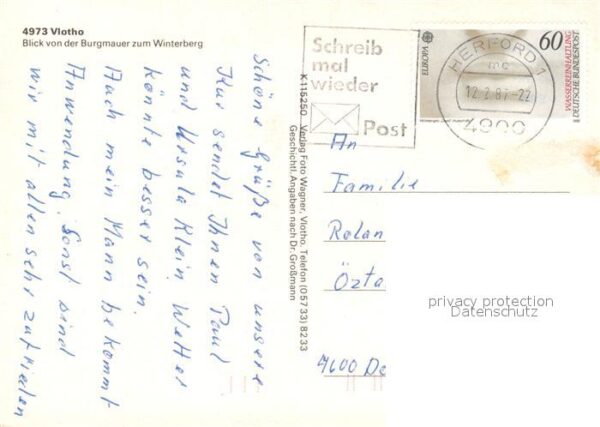 4973 Vlotho
Blick von der Burgmauer zum Winterberg
Schöne Grüße von unsere
Kur sendet Ihnen Paul
und Ursula Klein. Wetter
könnte besser sein.
Auch mein Mann bekommt
Anwendung. Sonst sind
wir mit allen sehr zufrieden
K 115250 Verlag Foto Wagner, Vlotho, Telefon (05733) 8233
Geschichtl. Angaben nach Dr. Großmann
Schreib
mal
wieder
Post
EUROPA CEPT
60
WASSERREINHALTUNG
DEUTSCHE BUNDESPOST
HERFORD 1
mc
12.2.87-22
4900
An
Familie
Rolan
Özta
4600 Do
privacy protection
Datenschutz